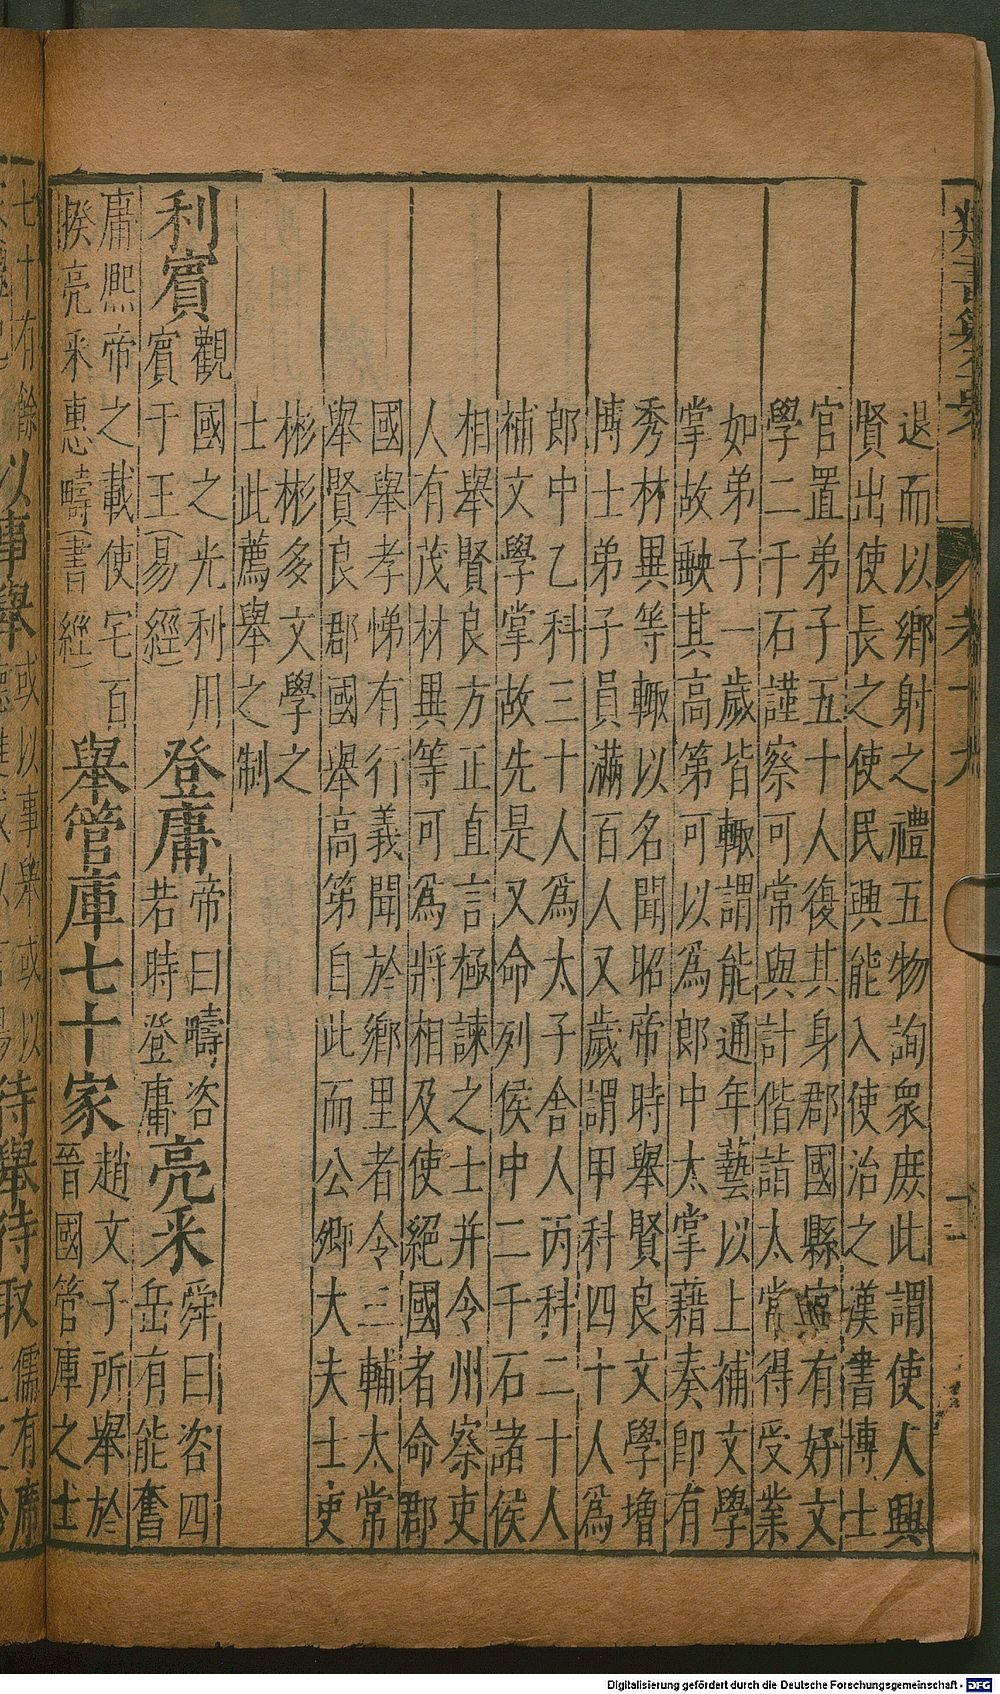 退而以鄉射之禮五物詢衆庶此謂使人興
賢出使長之使民興能入使治之漢書博士
官置弟子五十人復其身郡國縣官有好文
學二千石謹察可常與計偕詣太常得受業
如弟子一歲皆輒謂能通年藝以上補文學
掌故軼其高第可以為郎中太掌藉奏即有
秀林異等輒以名聞昭帝時舉賢良文學增
博士弟子員滿百人又歲謂甲科四十人為
郎中乙科三十人為太子舍人丙科二十人
補文學掌故先是又命列侯中二千石諸侯
相舉賢良方正直言極諫之士并令州察吏
人有茂材異等可為將相及使絕國者命郡
國舉孝悌有行義聞於鄉里者令三輔太常
舉賢良郡國舉高第自此而公卿大夫士吏
彬彬多文學之
士此薦舉之制
利賓
觀國之光利用
賓于王(易經)
登庸
帝曰疇咨
若時登庸
亮采
舜曰咨四
岳有能奮
庸熙帝之載使宅百
揆亮采惠疇(書經)
舉管庫七十家
趙文子所舉於
晉國管庫之士
七十有餘
以事舉或以
儒有席
Digitalisierung gefördert durch die Deutsche Forschungsgemeinschaft - DFG